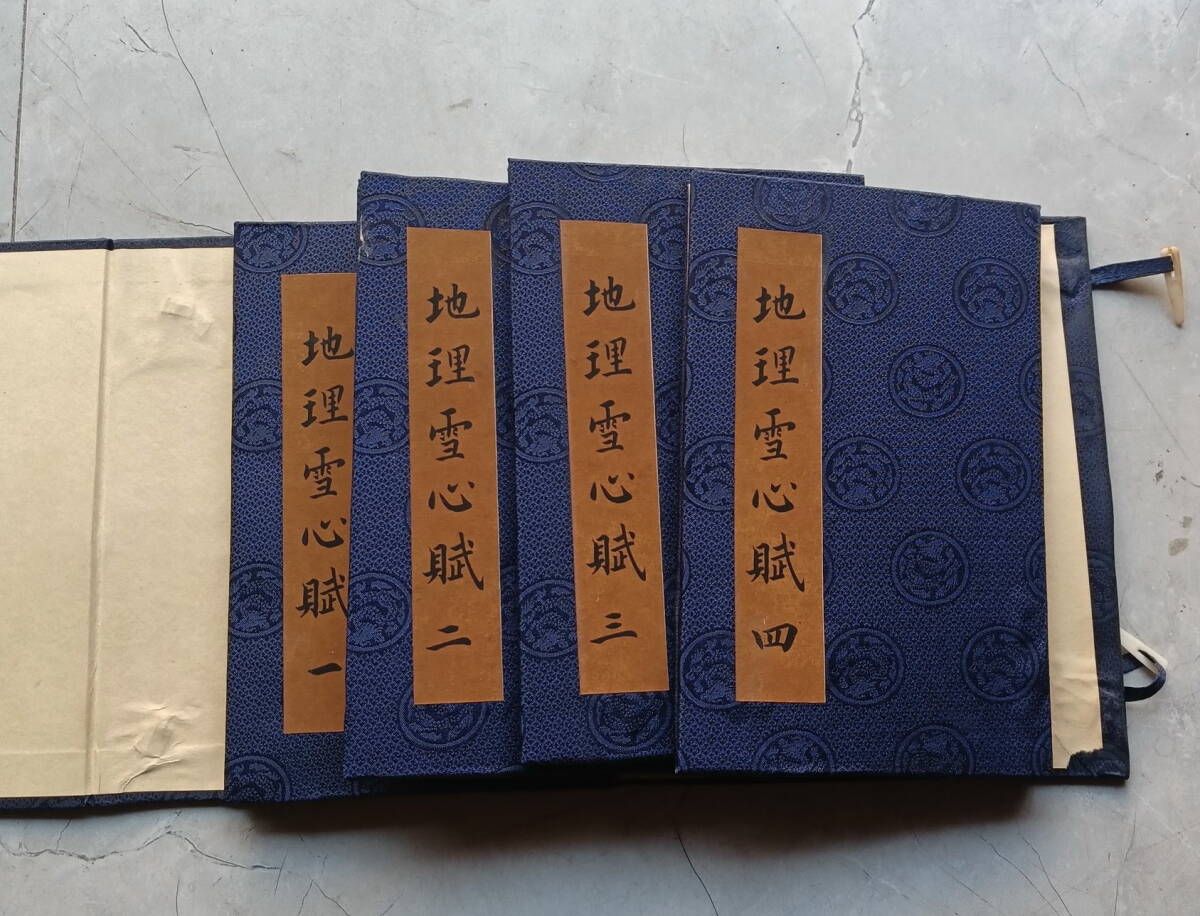 地理雪心賦一
地理雪心賦二
地理雪心賦三
地理雪心賦四